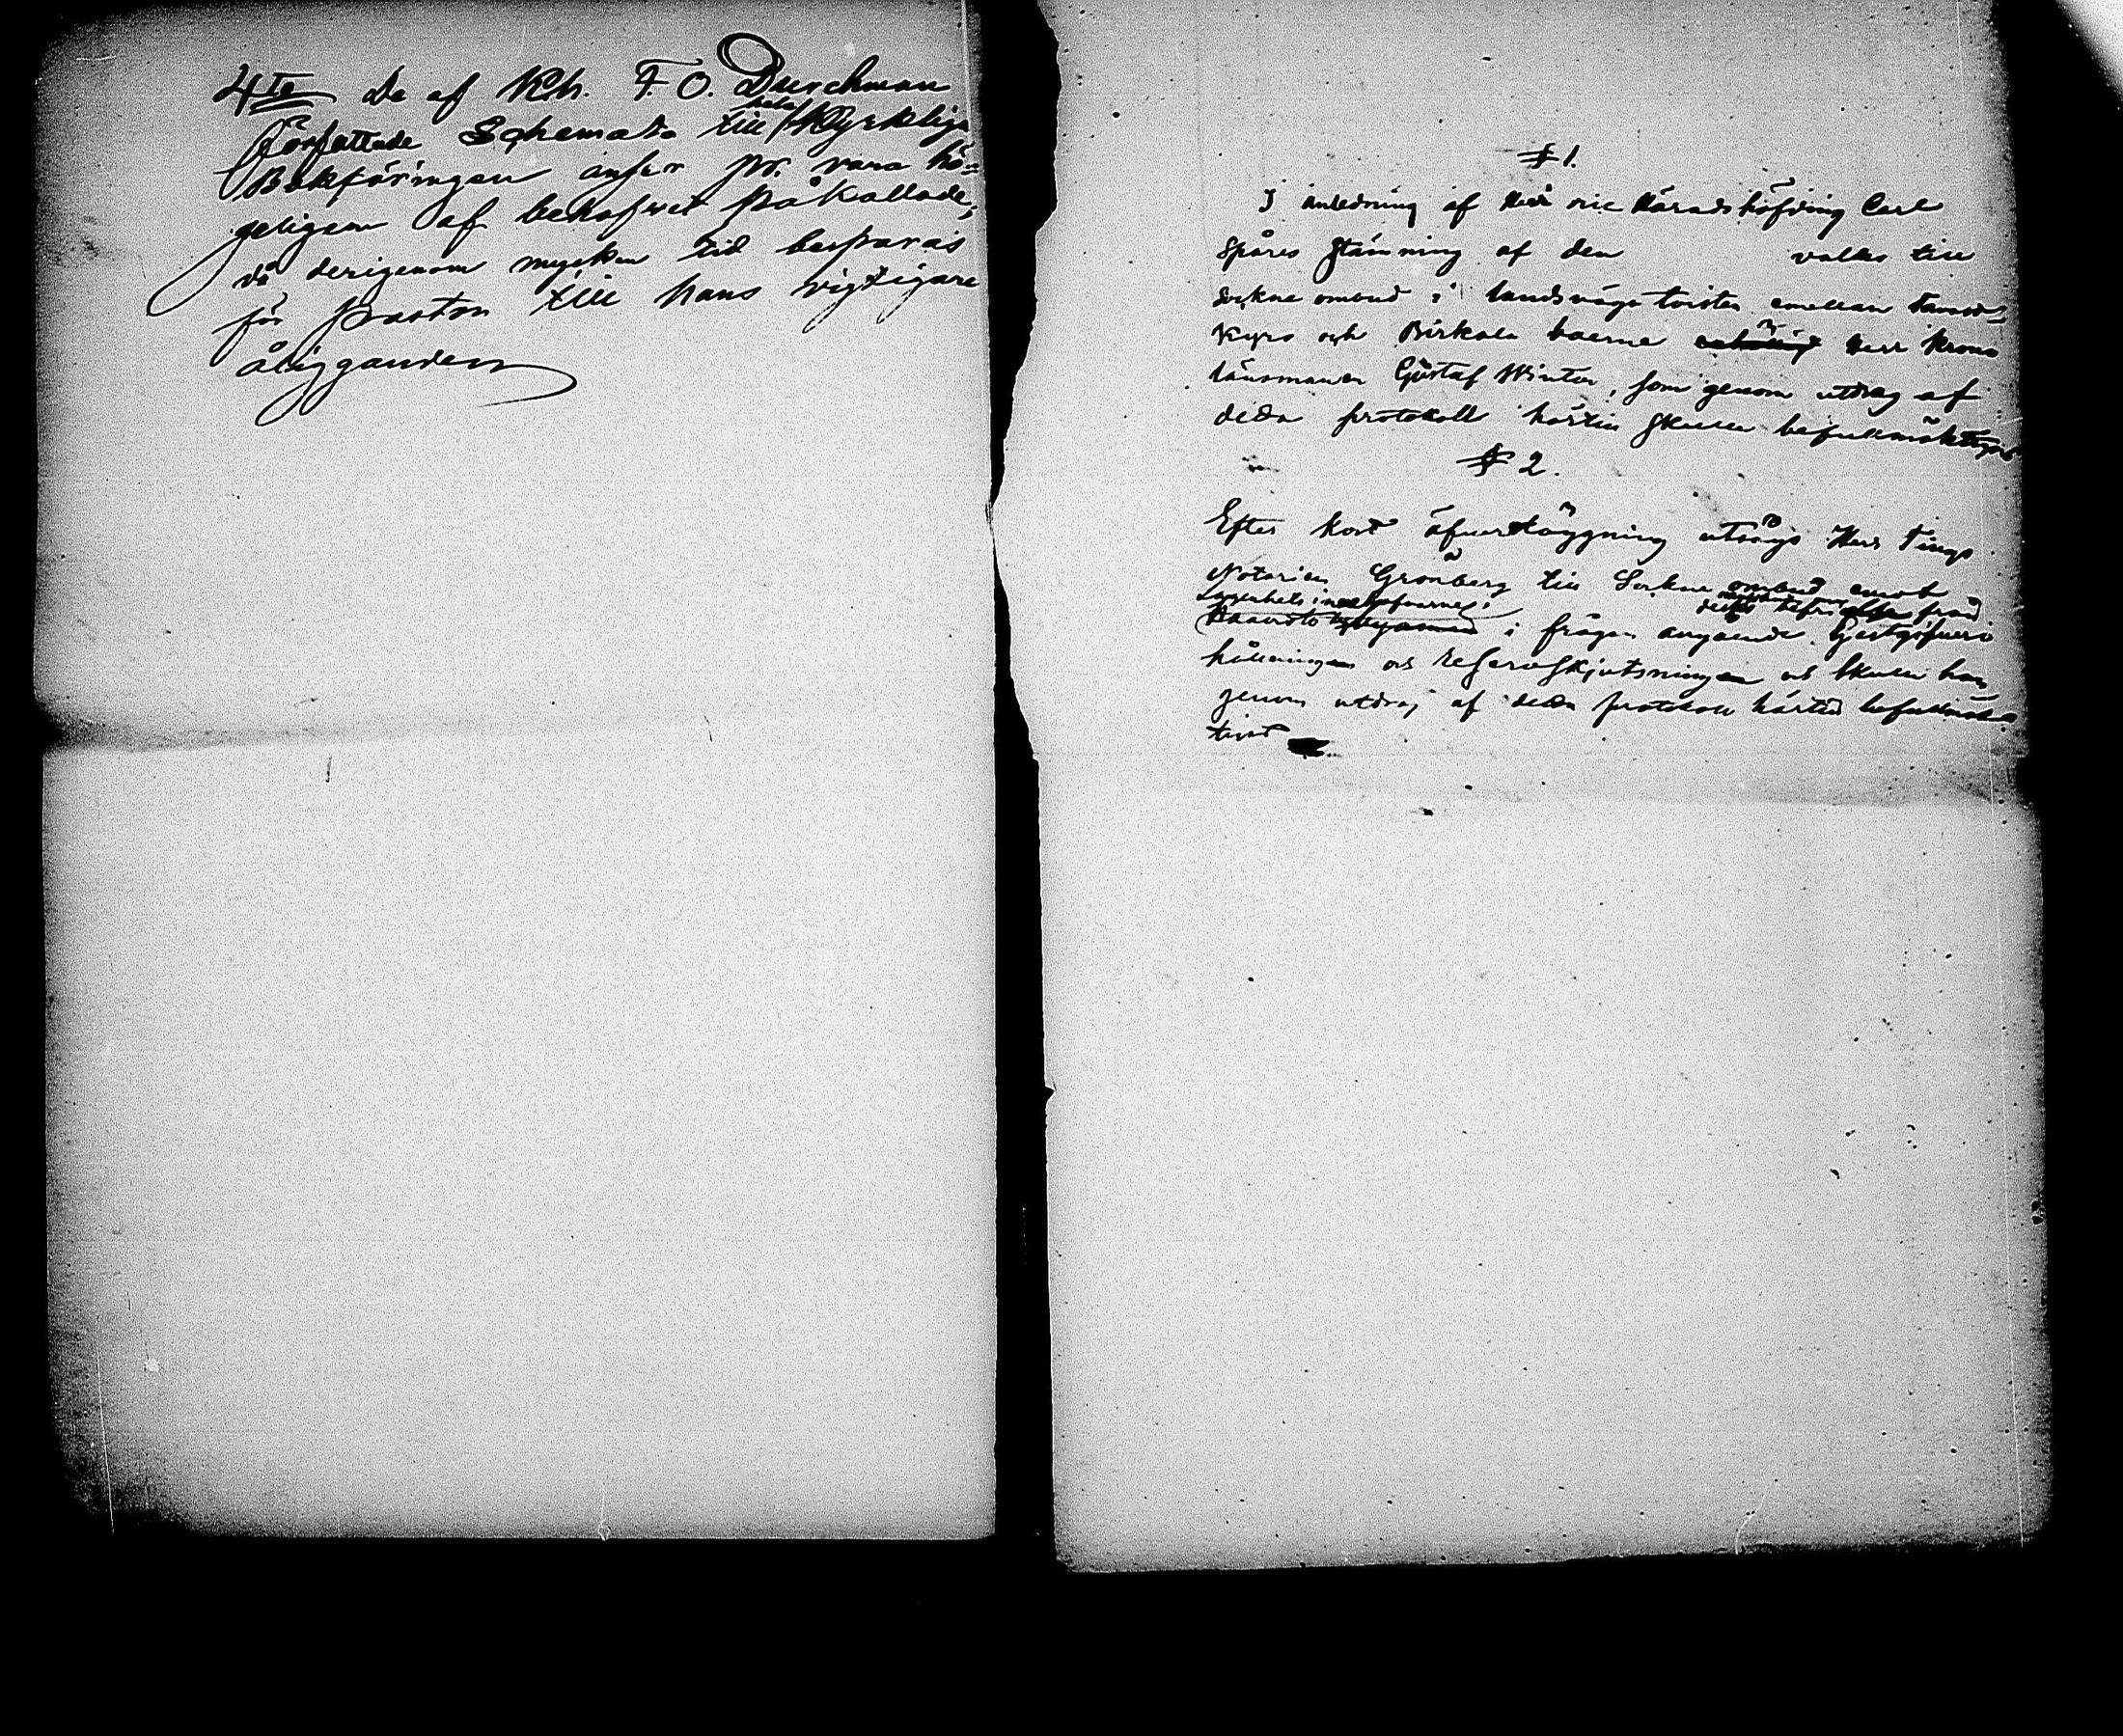 4te De af Kh. F. O. Durchman
författade Schemata till hela Kyrkliga
Bokföringen anser pr. vara hö-
geligen af behofvet påkallade;
då derigenom mycken tid besparas
för pastor till hans vigtigare
åligganden
§ 1.
I anledning af Herr vice Häradshöfding Carl
Spåres stämning af den valdes till
Sockne ombud i landsvägs tvisten emellan Tavast-
kyro och Birkala boerne Herr Krono
länsmannen Gustaf Winter, som genom utdrag af
detta protokoll härtill skulle befullmäktigas
§ 2.
Efter kort öfverläggning utsågs Herr Tings
Notarien Grönberg till Sockne ombud emot
Lägenhets innehafvarnes
i frågan angående Gestgifveri
hållningen och reservskjutsningen och skulle han
genom utdrag af detta protokoll härtill befullmäk-
tigas